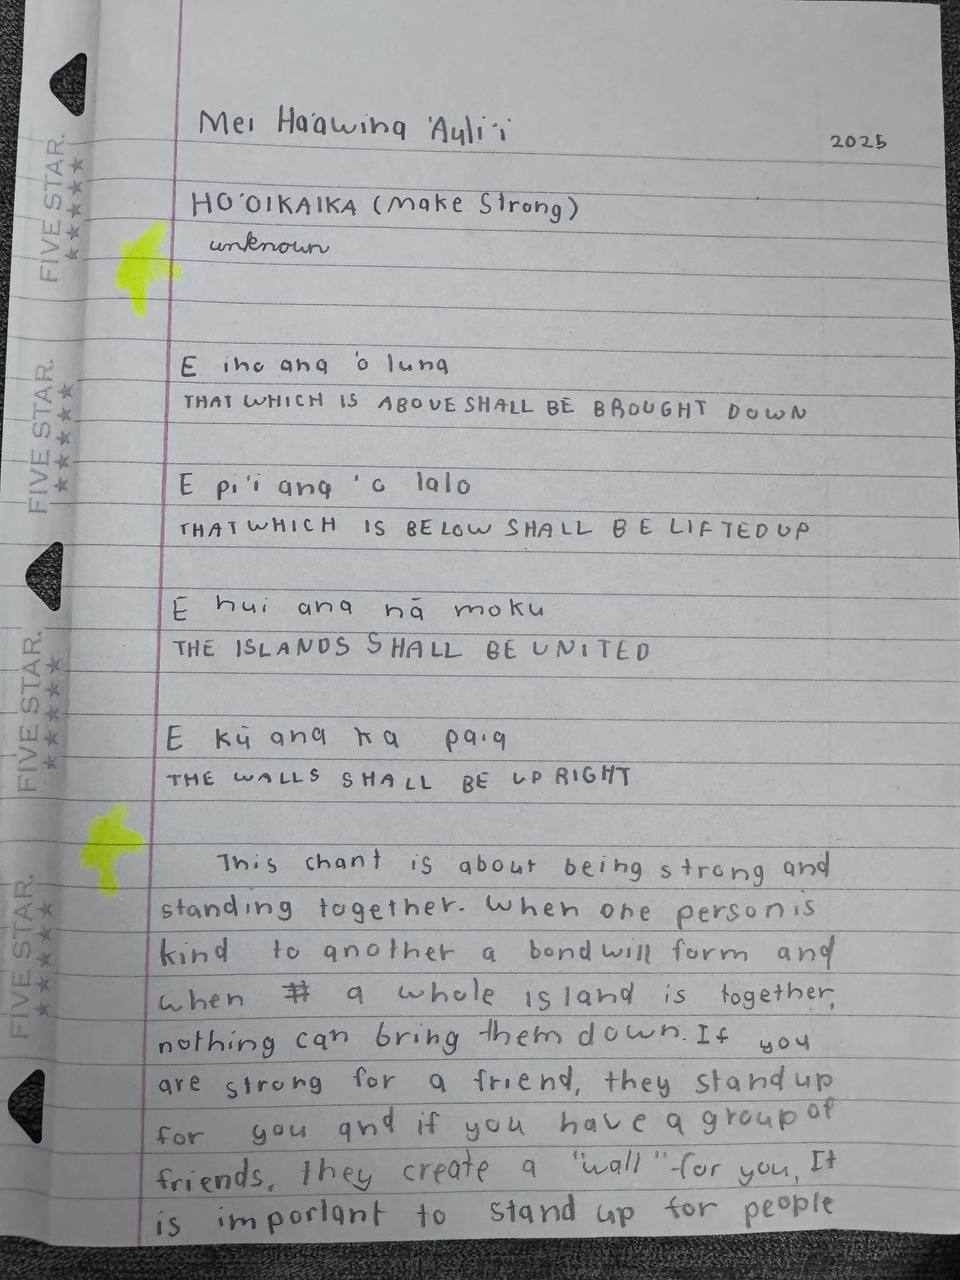 Mei Ha'awina 'Auli'i
2025
HO'OIKAIKA (Make Strong)
unknown
E iho ana 'o luna
THAT WHICH IS ABOVE SHALL BE BROUGHT DOWN
E pi'i ana 'o lalo
THAT WHICH IS BELOW SHALL BE LIFTED UP
E hui ana nā moku
THE ISLANDS SHALL BE UNITED
E kū ana ka paia
THE WALLS SHALL BE UPRIGHT
This chant is about being strong and
standing together. When one person is
kind to another a bond will form and
when a whole island is together,
nothing can bring them down. If you
are strong for a friend, they stand up
for you and if you have a group of
friends, they create a "wall" for you, It
is important to stand up for people
FIVE STAR.
FIVE STAR.
FIVE STAR.
FIVE STAR.